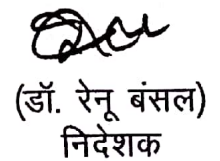 (डॉ. रेनू बंसल)
निदेशक